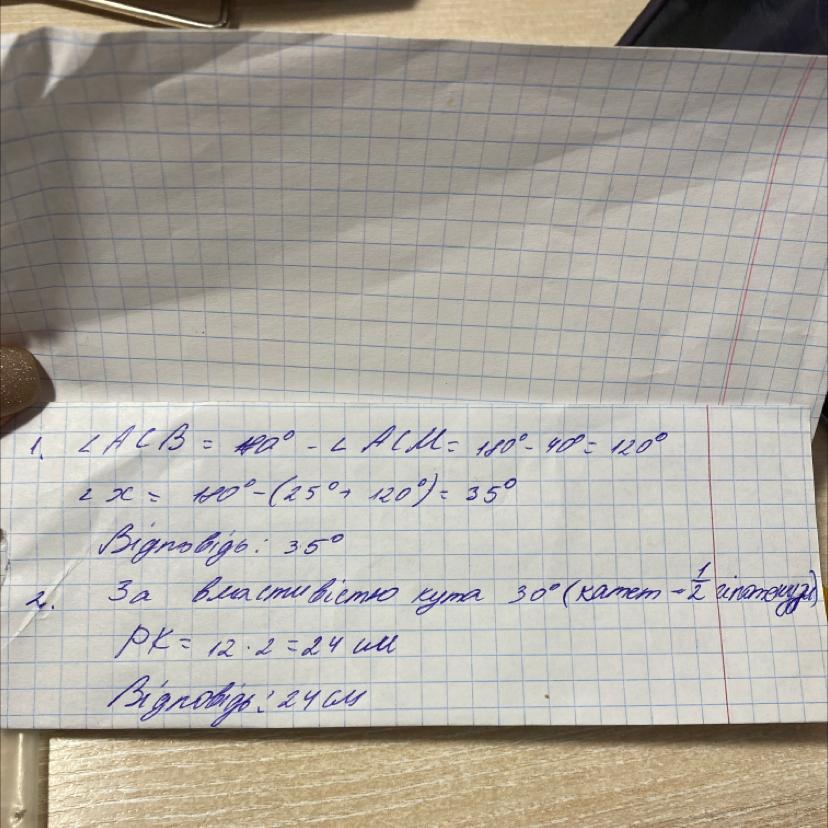 1. ∠ACB = 180° - ∠ACM = 180° - 40° = 120°
∠x = 180° - (25° + 120°) = 35°
Відповідь: 35°
2. За властивістю кута 30° (катет = 1/2 гіпотенузи)
PK = 12 · 2 = 24 см
Відповідь: 24 см